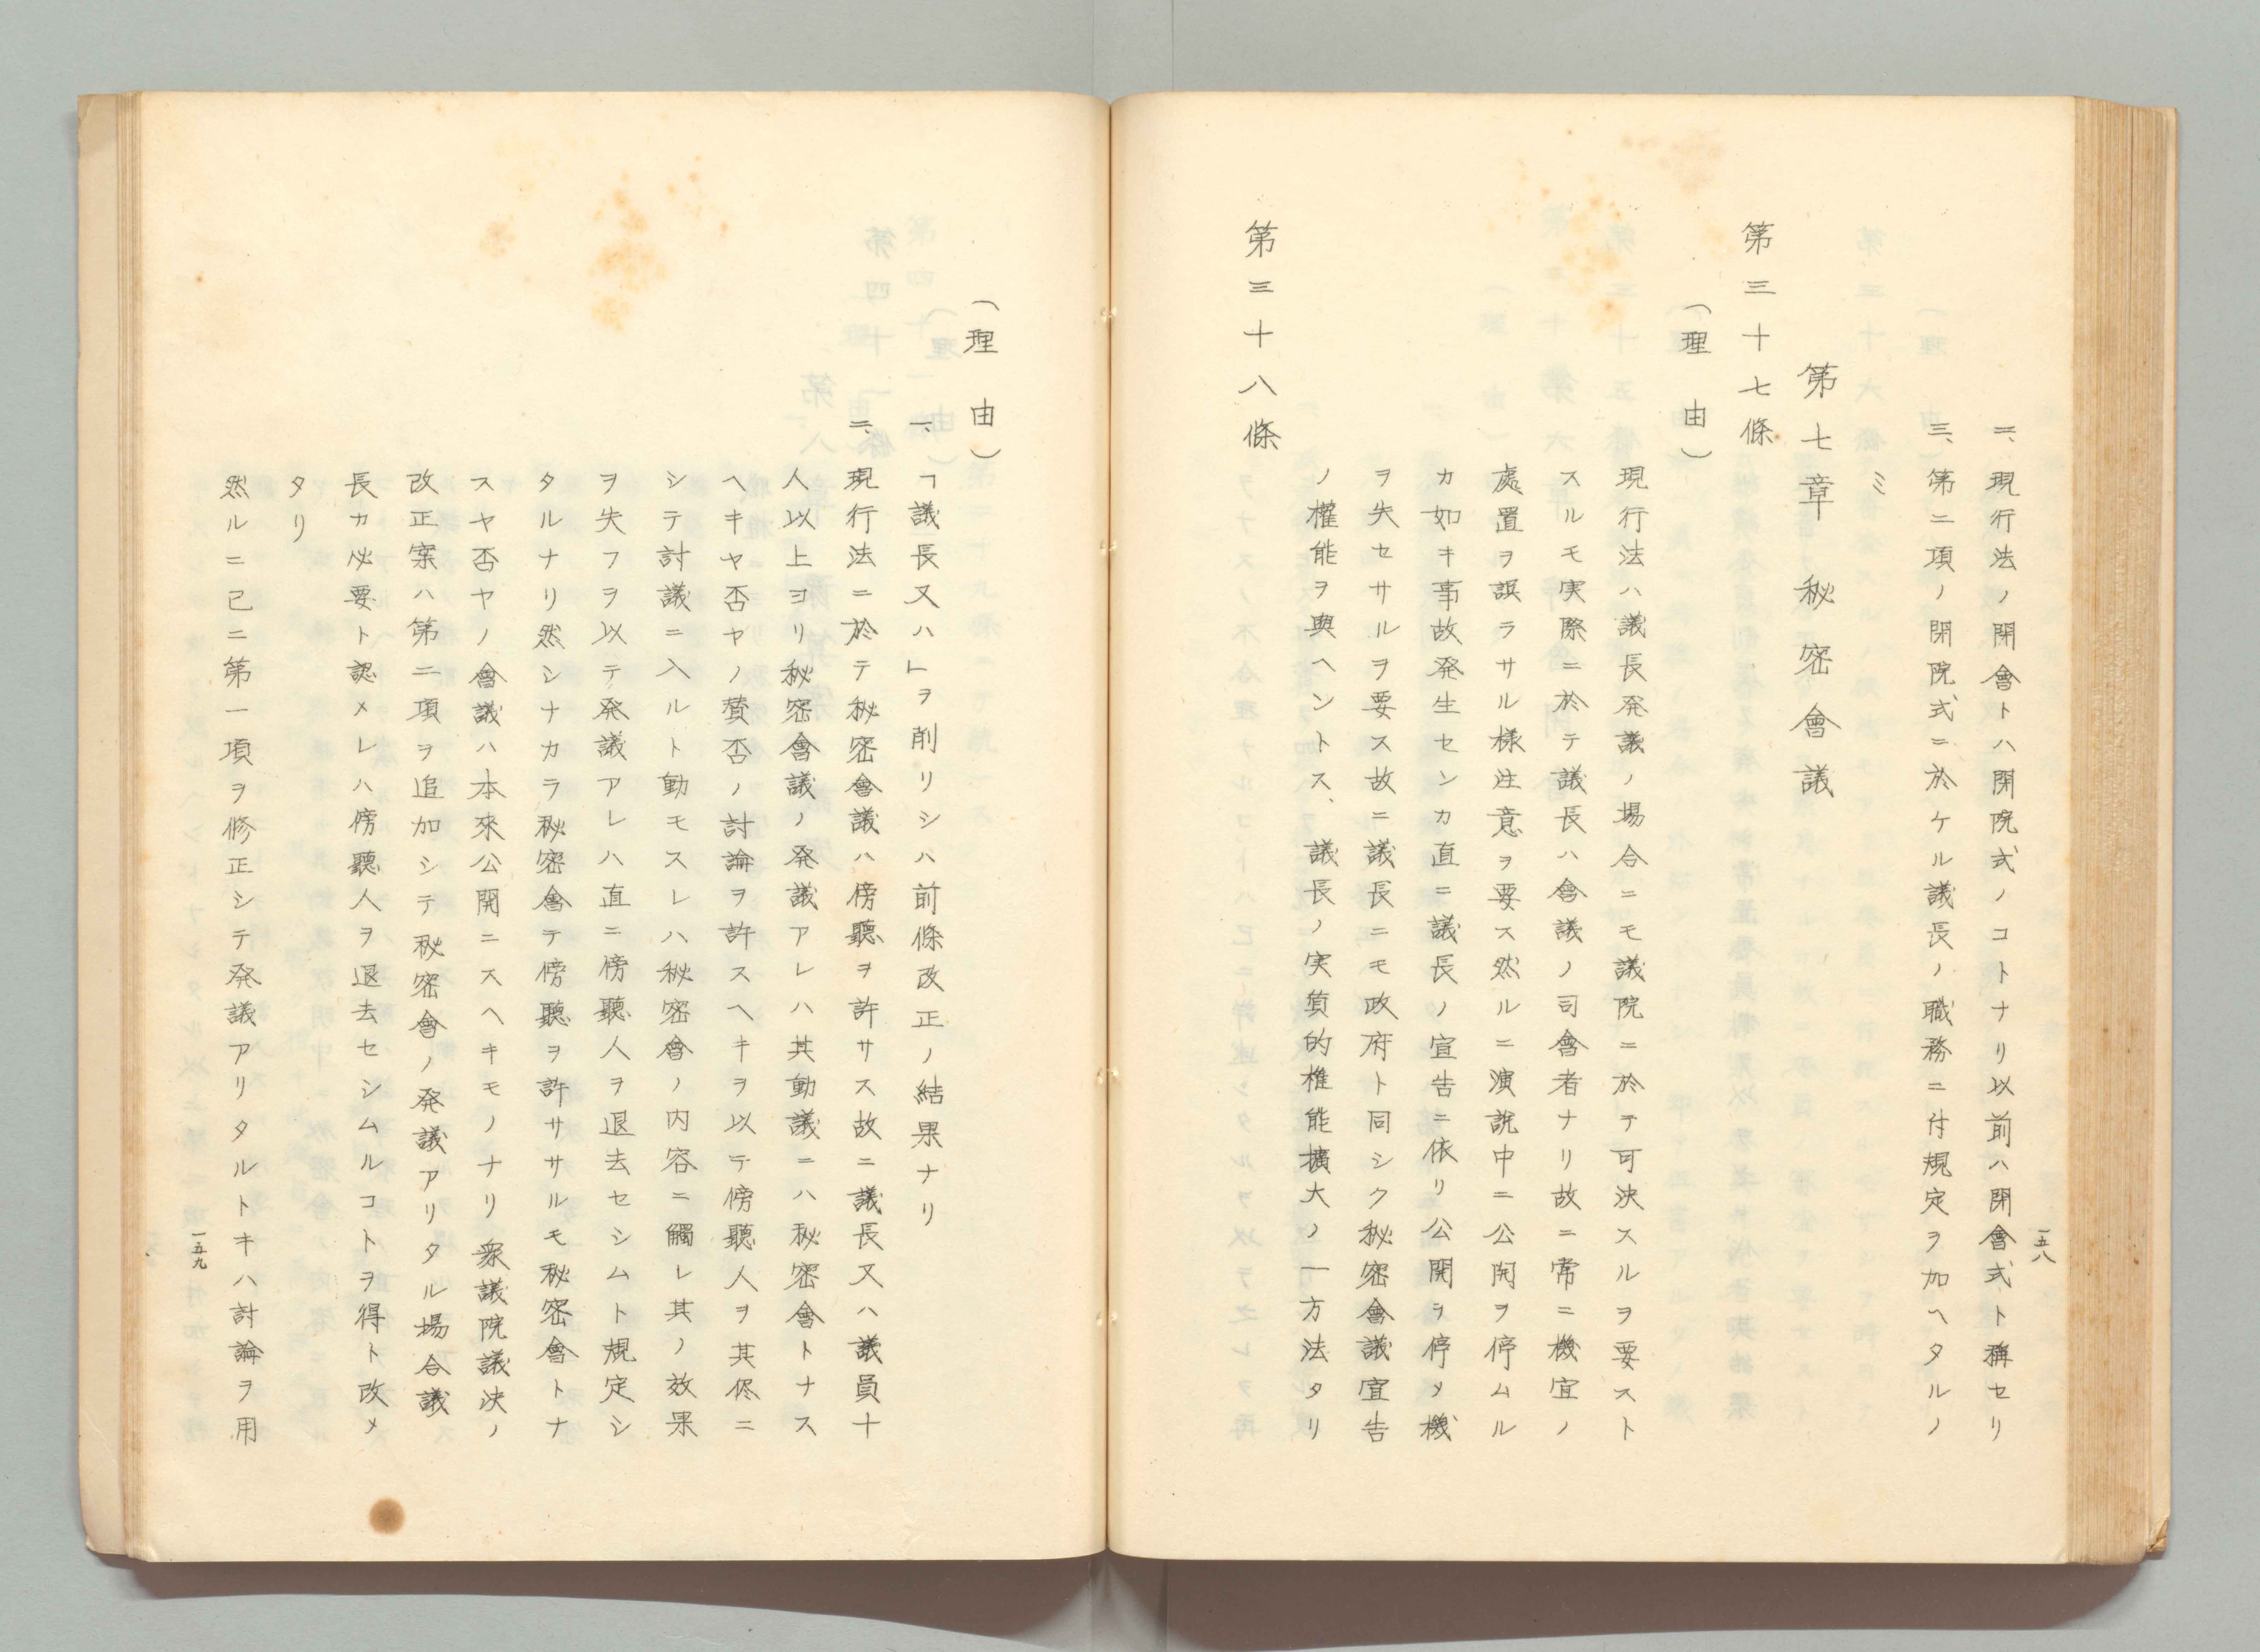 一五八
二、現行法ノ開會トハ開院式ノコトナリ以前ハ開會式ト稱セリ
三、第二項ノ開院式ニ於ケル議長ノ職務ニ付規定ヲ加ヘタルノ
ミ
第七章 秘密會議
第三十七條
（理由）
現行法ハ議長発議ノ場合ニモ議院ニ於テ可決スルヲ要スト
スルモ実際ニ於テ議長ハ會議ノ司會者ナリ故ニ常ニ機宜ノ
處置ヲ誤ラサル様注意ヲ要ス然ルニ演説中ニ公開ヲ停ムル
カ如キ事故発生センカ直ニ議長ノ宣告ニ依リ公開ヲ停メ機
ヲ失セサルヲ要ス故ニ議長ニモ政府ト同シク秘密會議宣告
ノ權能ヲ與ヘントス、議長ノ実質的権能擴大ノ一方法タリ
第三十八條
（理由）
一、「議長又ハ」ヲ削リシハ前條改正ノ結果ナリ
二、現行法ニ於テ秘密會議ハ傍聽ヲ許サス故ニ議長又ハ議員十
人以上ヨリ秘密會議ノ発議アレハ其動議ニハ秘密會トナス
ヘキヤ否ヤノ賛否ノ討論ヲ許スヘキヲ以テ傍聽人ヲ其侭ニ
シテ討議ニ入ルト動モスレハ秘密會ノ内容ニ觸レ其ノ效果
ヲ失フヲ以テ発議アレハ直ニ傍聽人ヲ退去セシムト規定シ
タルナリ然シナカラ秘密會テ傍聽ヲ許ササルモ秘密會トナ
スヤ否ヤノ會議ハ本來公開ニスヘキモノナリ衆議院議決ノ
改正案ハ第二項ヲ追加シテ秘密會ノ発議アリタル場合議
長カ必要ト認メレハ傍聽人ヲ退去セシムルコトヲ得ト改メ
タリ
然ルニ己ニ第一項ヲ修正シテ発議アリタルトキハ討論ヲ用
一五九